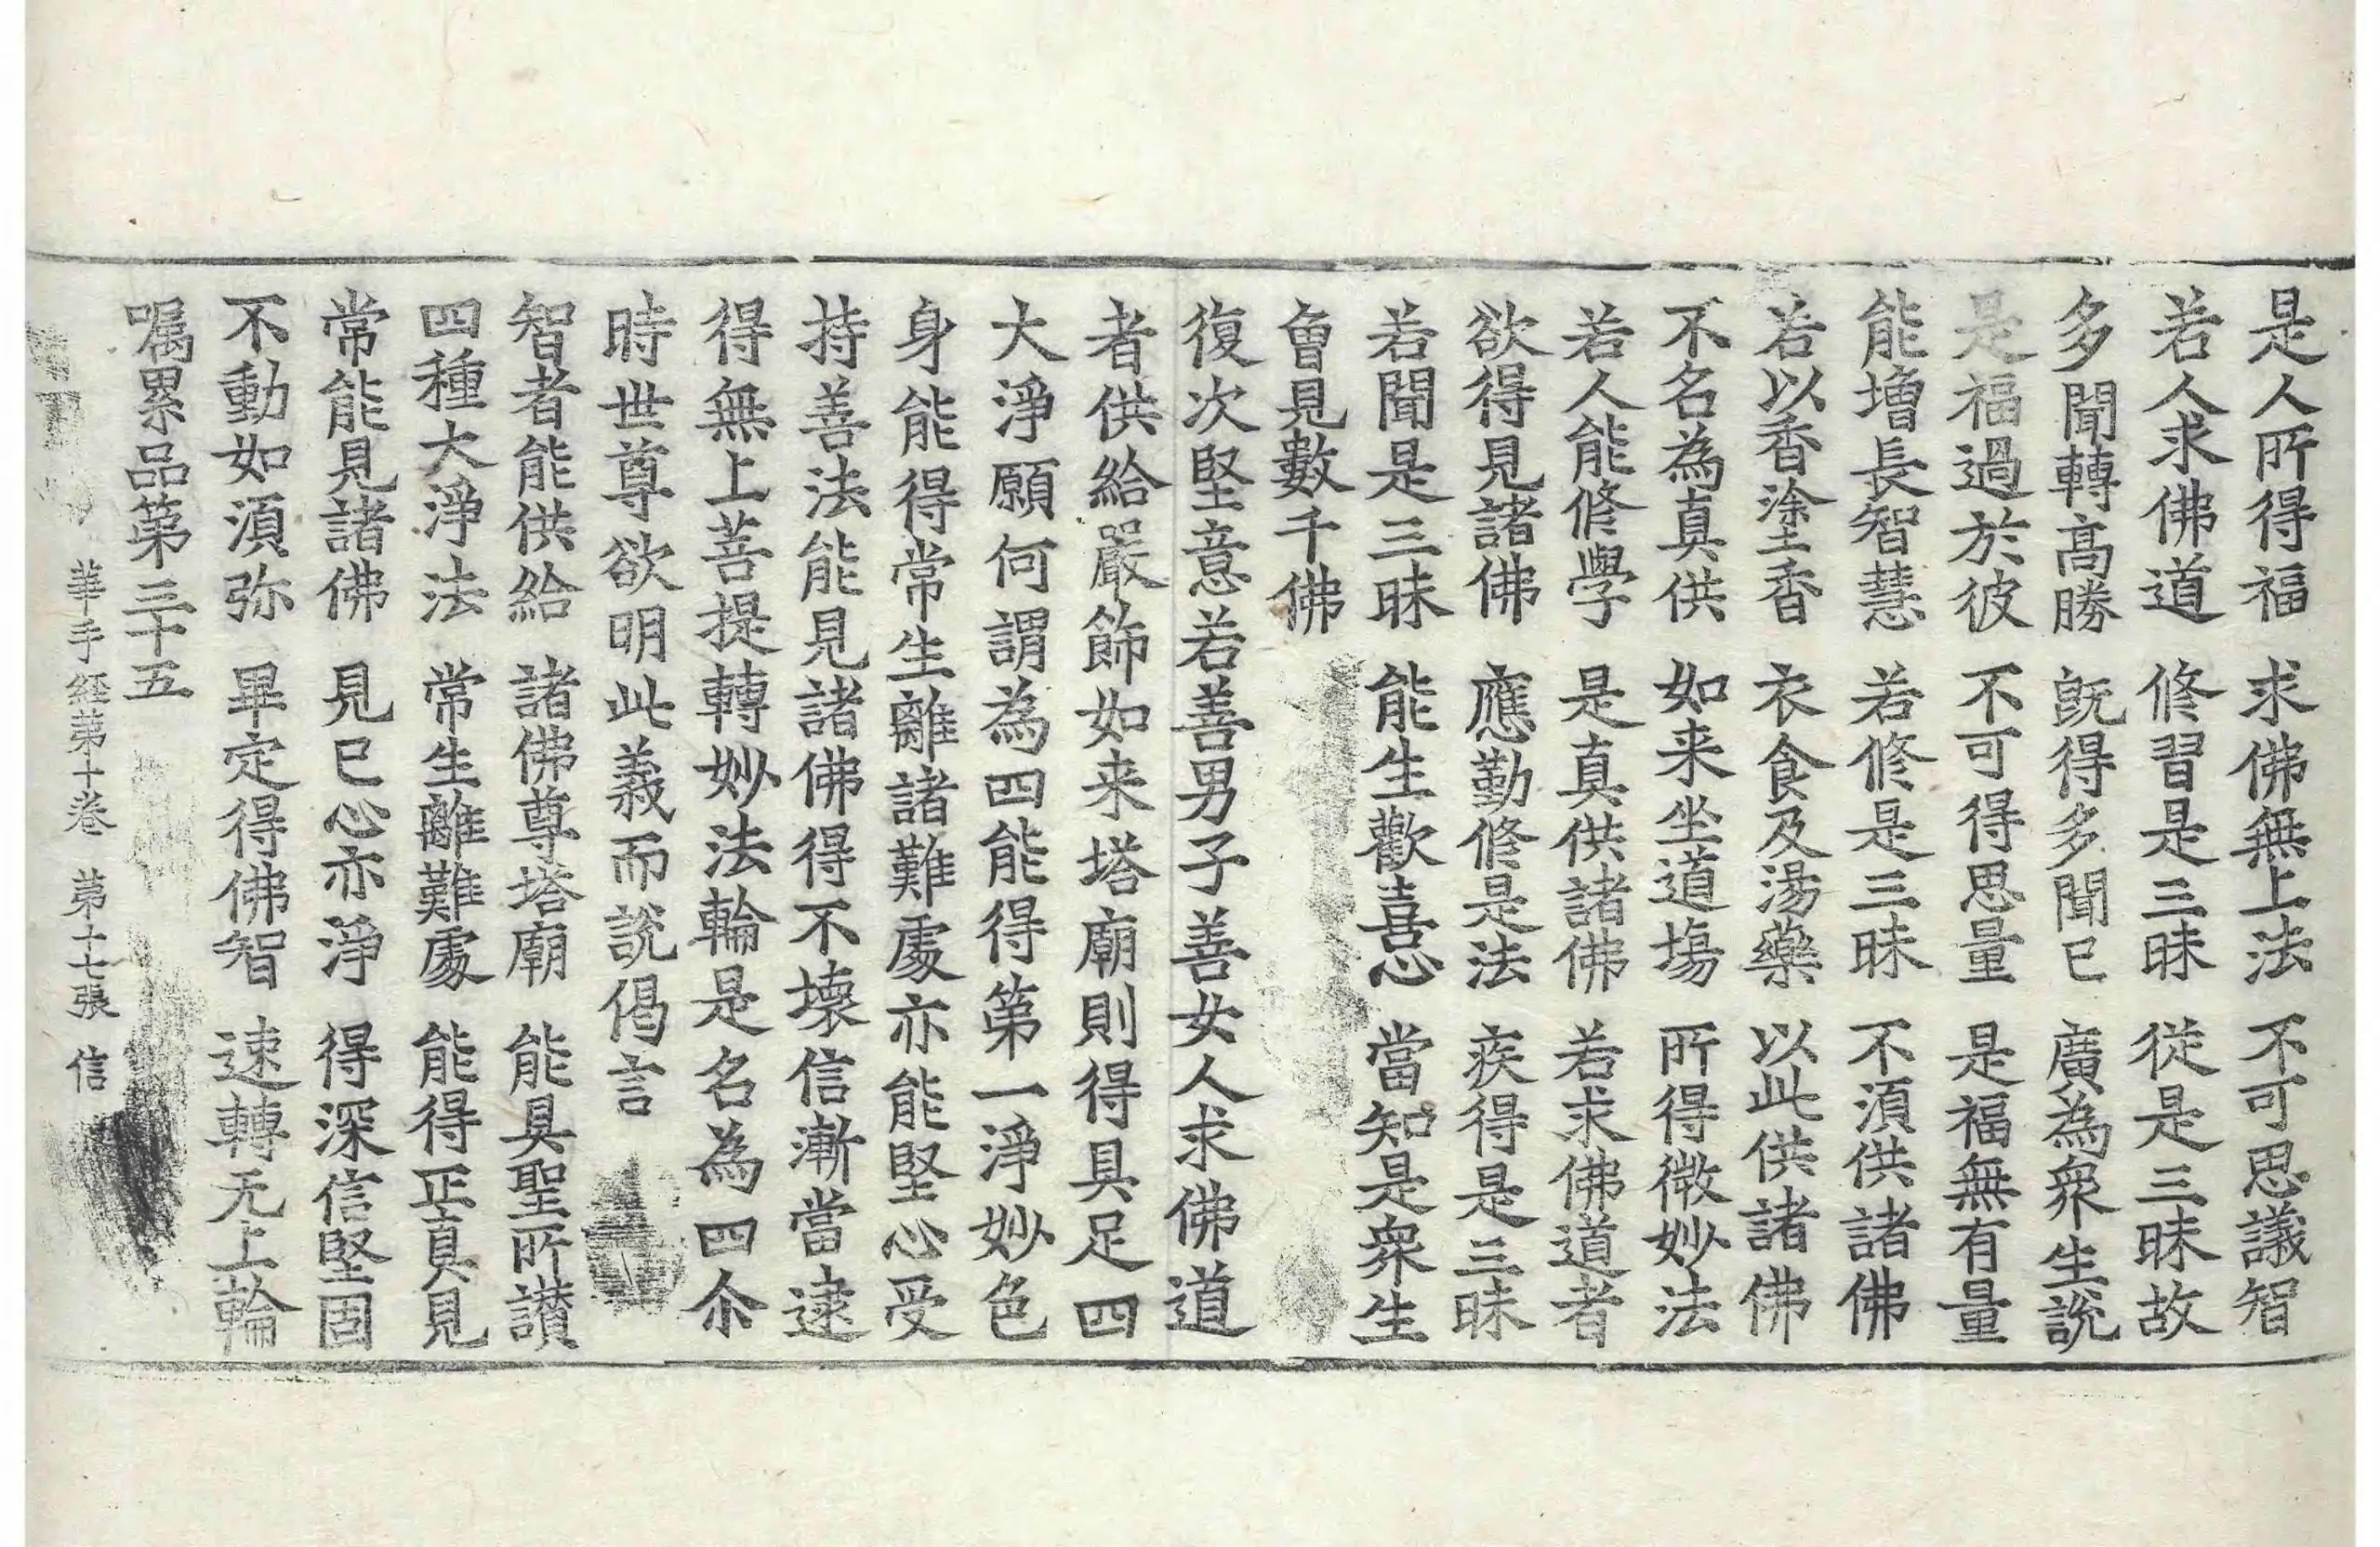 是人所得福　求佛無上法　不可思議智
若人求佛道　修習是三昧　從是三昧故
多聞轉髙勝　旣得多聞已　廣為衆生說
是福過於彼　不可得思量　是福無有量
能增長智慧　若修是三昧　不湏供諸佛
若以香塗香　衣食及湯藥　以此供諸佛
不名為真供　如来坐道場　所得微妙法
若人能修學　是真供諸佛　若求佛道者
欲得見諸佛　應勤修是法　疾得是三昧
若聞是三昧　能生歡喜心　當知是衆生
曾見數千佛
復次堅意若善男子善女人求佛道
者供給嚴飾如来塔廟則得具足四
大淨願何謂為四能得第一淨妙色
身能得常生離諸難處亦能堅心受
持善法能見諸佛得不壞信漸當逮
得無上菩提轉妙法輪是名為四尒
時世尊欲明此義而說偈言
智者能供給　諸佛尊塔廟　能具聖所讃
四種大淨法　常生離難處　能得正真見
常能見諸佛　見已心亦淨　得深信堅固
不動如湏弥　畢定得佛智　速轉无上輪
嘱累品第三十五
華手経第十卷　第十七張　信